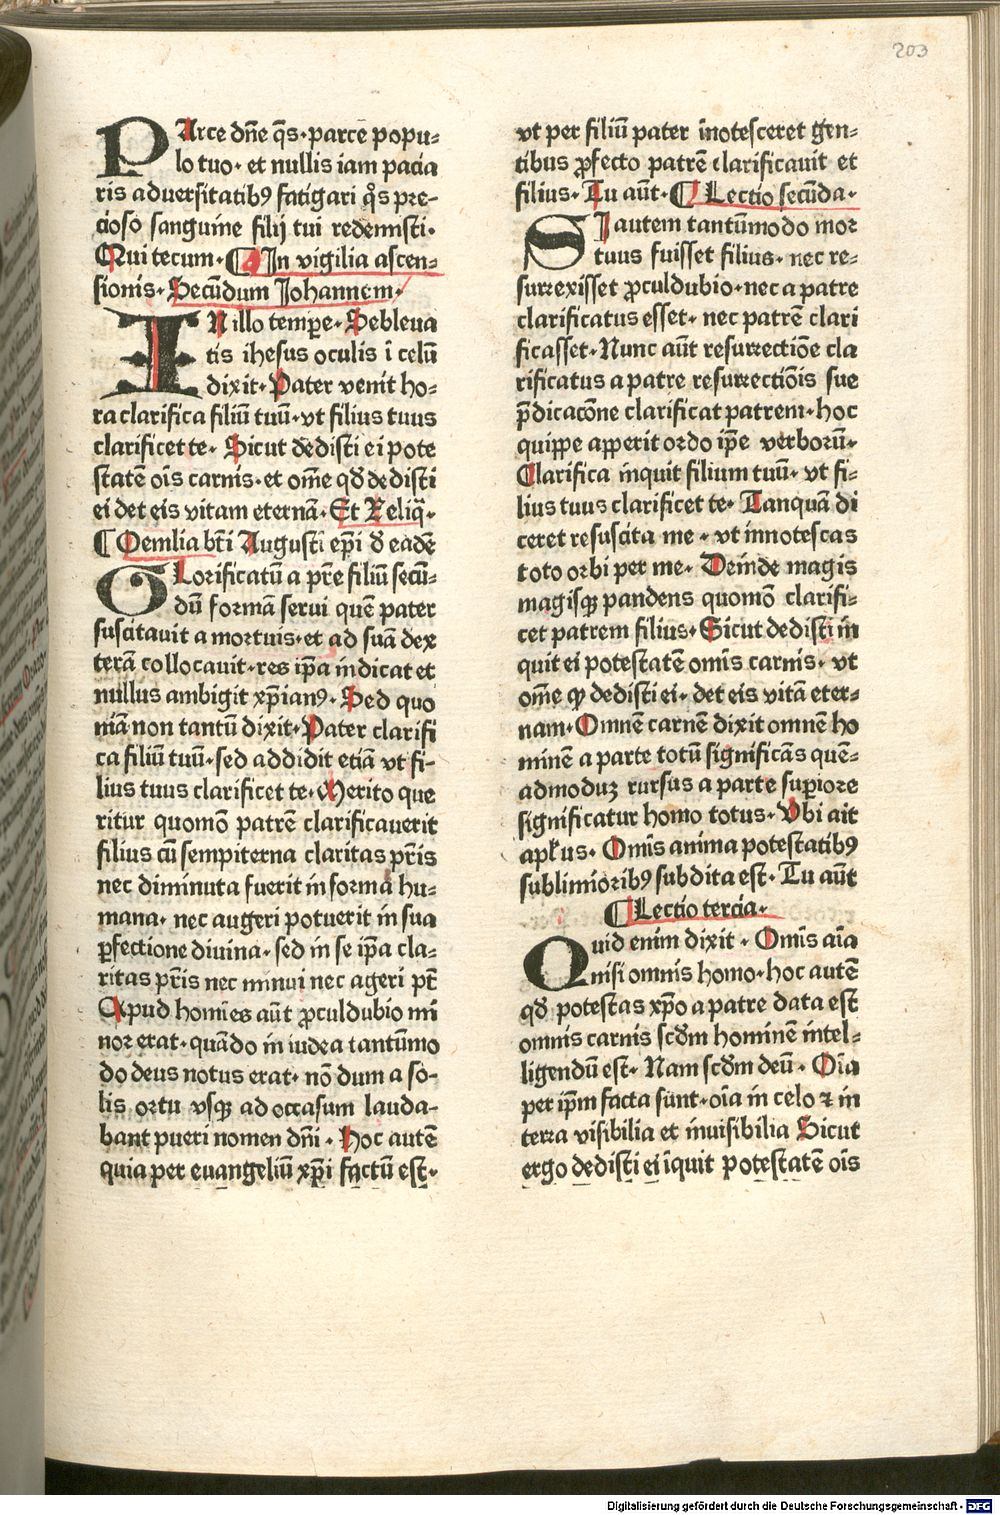 203
PArce dn̄e q̄s·parce popu⸗
lo tuo·et nullis iam pacia
ris aduersitatibꝰ fatigari q̊s pre⸗
cioso sanguine filij tui redemisti·
Qui tecum·¶ In vigilia ascen⸗
sionis·Secūdum Johannem·
IN illo tempe·Subleua
tis ihesus oculis ī celū
dixit·Pater venit ho⸗
ra clarifica filiū tuū·vt filius tuus
clarificet te·Sicut dedisti ei pote
statē oīs carnis·et om̄e qd̄ dedisti
ei det eis vitam eternā·Et Reliq̄·
¶ Oemlia bt̄i Augusti ep̄i d̄ eadē
GLorificatū a pr̄e filiū secū⸗
dū formā serui quē pater
suscitauit a mortuis·et ad suā dex
terā collocauit·res ip̄a indicat et
nullus ambigit xp̄ianꝰ·Sed quo
niā non tantū dixit·Pater clarifi
ca filiū tuū·sed addidit etiā vt fi⸗
lius tuus clarificet te·Merito que
ritur quomō patrē clarificauerit
filius cū sempiterna claritas pr̄is
nec diminuta fuerit in forma hu⸗
mana·nec augeri potuerit in sua
ꝑfectione diuina·sed in se ip̄a cla⸗
ritas pr̄is nec minui nec ageri pt̄
Apud homīes aūt ꝓculdubio mi
nor erat·quādo in iudea tantūmo
do deus notus erat·nō dum a so⸗
lis ortu vsqꝫ ad occasum lauda⸗
bant pueri nomen dn̄i·Hoc autē
quia per euangeliū xp̄i factū est·
vt per filiū pater īnotesceret gen⸗
tibus ꝓfecto patrē clarificauit et
filius·Tu aūt·¶ Lectio secūda·
SI autem tantūmodo mor
tuus fuisset filius·nec re⸗
surrexisset ꝓculdubio·nec a patre
clarificatus esset·nec patrē clari
ficasset·Nunc aūt resurrectiōe cla
rificatus a patre resurrectiōis sue
p̄dicacōne clarificat patrem·hoc
quippe apperit ordo ip̄e verborū·
Clarifica inquit filium tuū·vt fi⸗
lius tuus clarificet te·Tanquā di
ceret resuscita me·vt innotescas
toto orbi per me·Deinde magis
magisqꝫ pandens quomō clarifi⸗
cet patrem filius·Sicut dedisti in
quit ei potestatē omīs carnis·vt
om̄e qđ dedisti ei·det eis vitā eter⸗
nam·Omnē carnē dixit omnē ho
minē a parte totū significās quē⸗
admoduꝫ rursus a parte supiore
significatur homo totus·Vbi ait
apl̄us·Omīs anima potestatibꝰ
sublimioribꝰ subdita est·Tu aūt
¶ Lectio tercia·
QUid enim dixit·Omīs aīa
nisi omnis homo·hoc autē
qd̄ potestas xp̄o a patre data est
omnis carnis scd̄m hominē intel⸗
ligendū est·Nam scd̄m deū·Oīa
per ip̄m facta sunt·oīa in celo ⁊ in
terra visibilia et inuisibilia Sicut
ergo dedisti ei īquit potestatē oīs
Digitalisierung gefördert durch die Deutsche Forschungsgemeinschaft - DFG